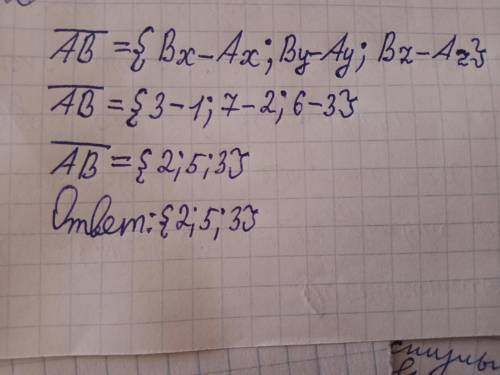 AB = { Bx - Ax ; By - Ay ; Bz - Az }
AB = { 3 - 1 ; 7 - 2 ; 6 - 3 }
AB = { 2 ; 5 ; 3 }
Ответ: { 2 ; 5 ; 3 }